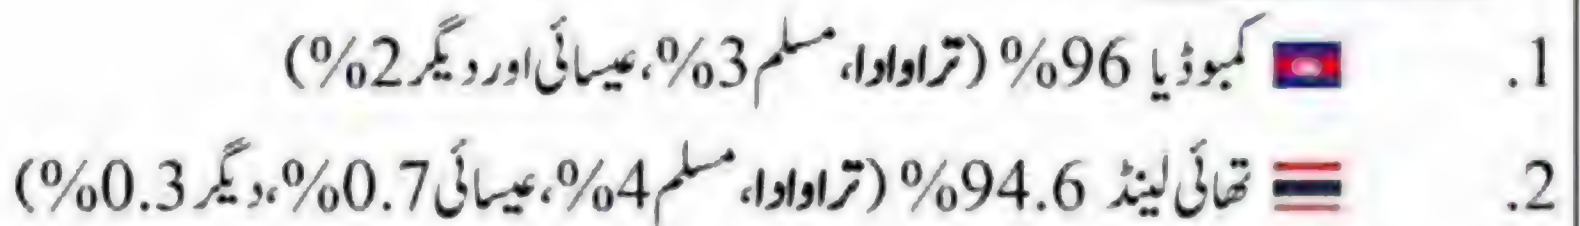 1. کمبوڈیا 96% (تراوادا، مسلم 3%، عیسائی اور دیگر 2%)
2. تھائی لینڈ 94.6% (تراوادا، مسلم 4%، عیسائی 0.7%، دیگر 0.3%)